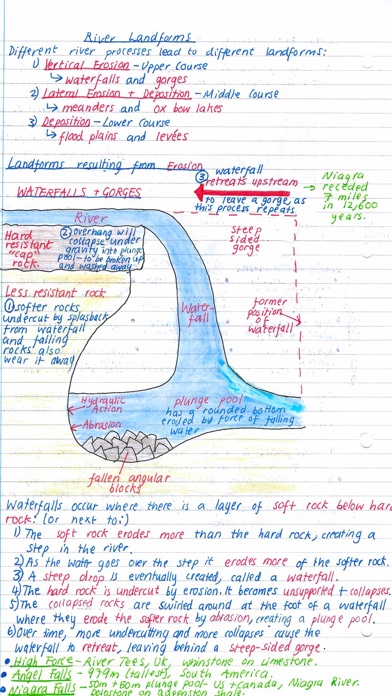 River Landforms
Different river processes lead to different landforms:
1) Vertical Erosion - Upper Course
↳ waterfalls and gorges
2) Lateral Erosion + Deposition - Middle Course
↳ meanders and ox bow lakes
3) Deposition - Lower Course
↳ flood plains and levées
Landforms resulting from Erosion
WATERFALLS + GORGES
③ waterfall
retreats upstream
to leave a gorge, as
this process repeats
→ Niagra
receded
7 miles
in 12,600
years.
River
Hard
resistant
"cap"
rock.
② overhang will
collapse under
gravity into plunge
pool - to be broken up
and washed away
steep
sided
gorge
Less resistant rock
① softer rocks
undercut by splasback
from waterfall
and falling
rocks also
wear it away
Water-
fall
former
position
of
waterfall
Hydraulic
Action
Abrasion
plunge pool
has a rounded bottom
eroded by force of falling
water
fallen angular
blocks
Waterfalls occur where there is a layer of soft rock below hard
rock: (or next to:)
1) The soft rock erodes more than the hard rock, creating a
step in the river.
2) As the water goes over the step it erodes more of the softer rock.
3) A steep drop is eventually created, called a waterfall.
4) The hard rock is undercut by erosion. It becomes unsupported + collapses.
5) The collapsed rocks are swirled around at the foot of a waterfall
where they erode the softer rock by abrasion, creating a plunge pool.
6) Over time, more undercutting and more collapses cause the
waterfall to retreat, leaving behind a steep-sided gorge.
• High Force - River Tees, UK, whinstone on limestone.
• Angel Falls - 979m (tallest), South America.
• Niagara Falls - 50m + 50m plunge pool - US + Canada, Niagra River.